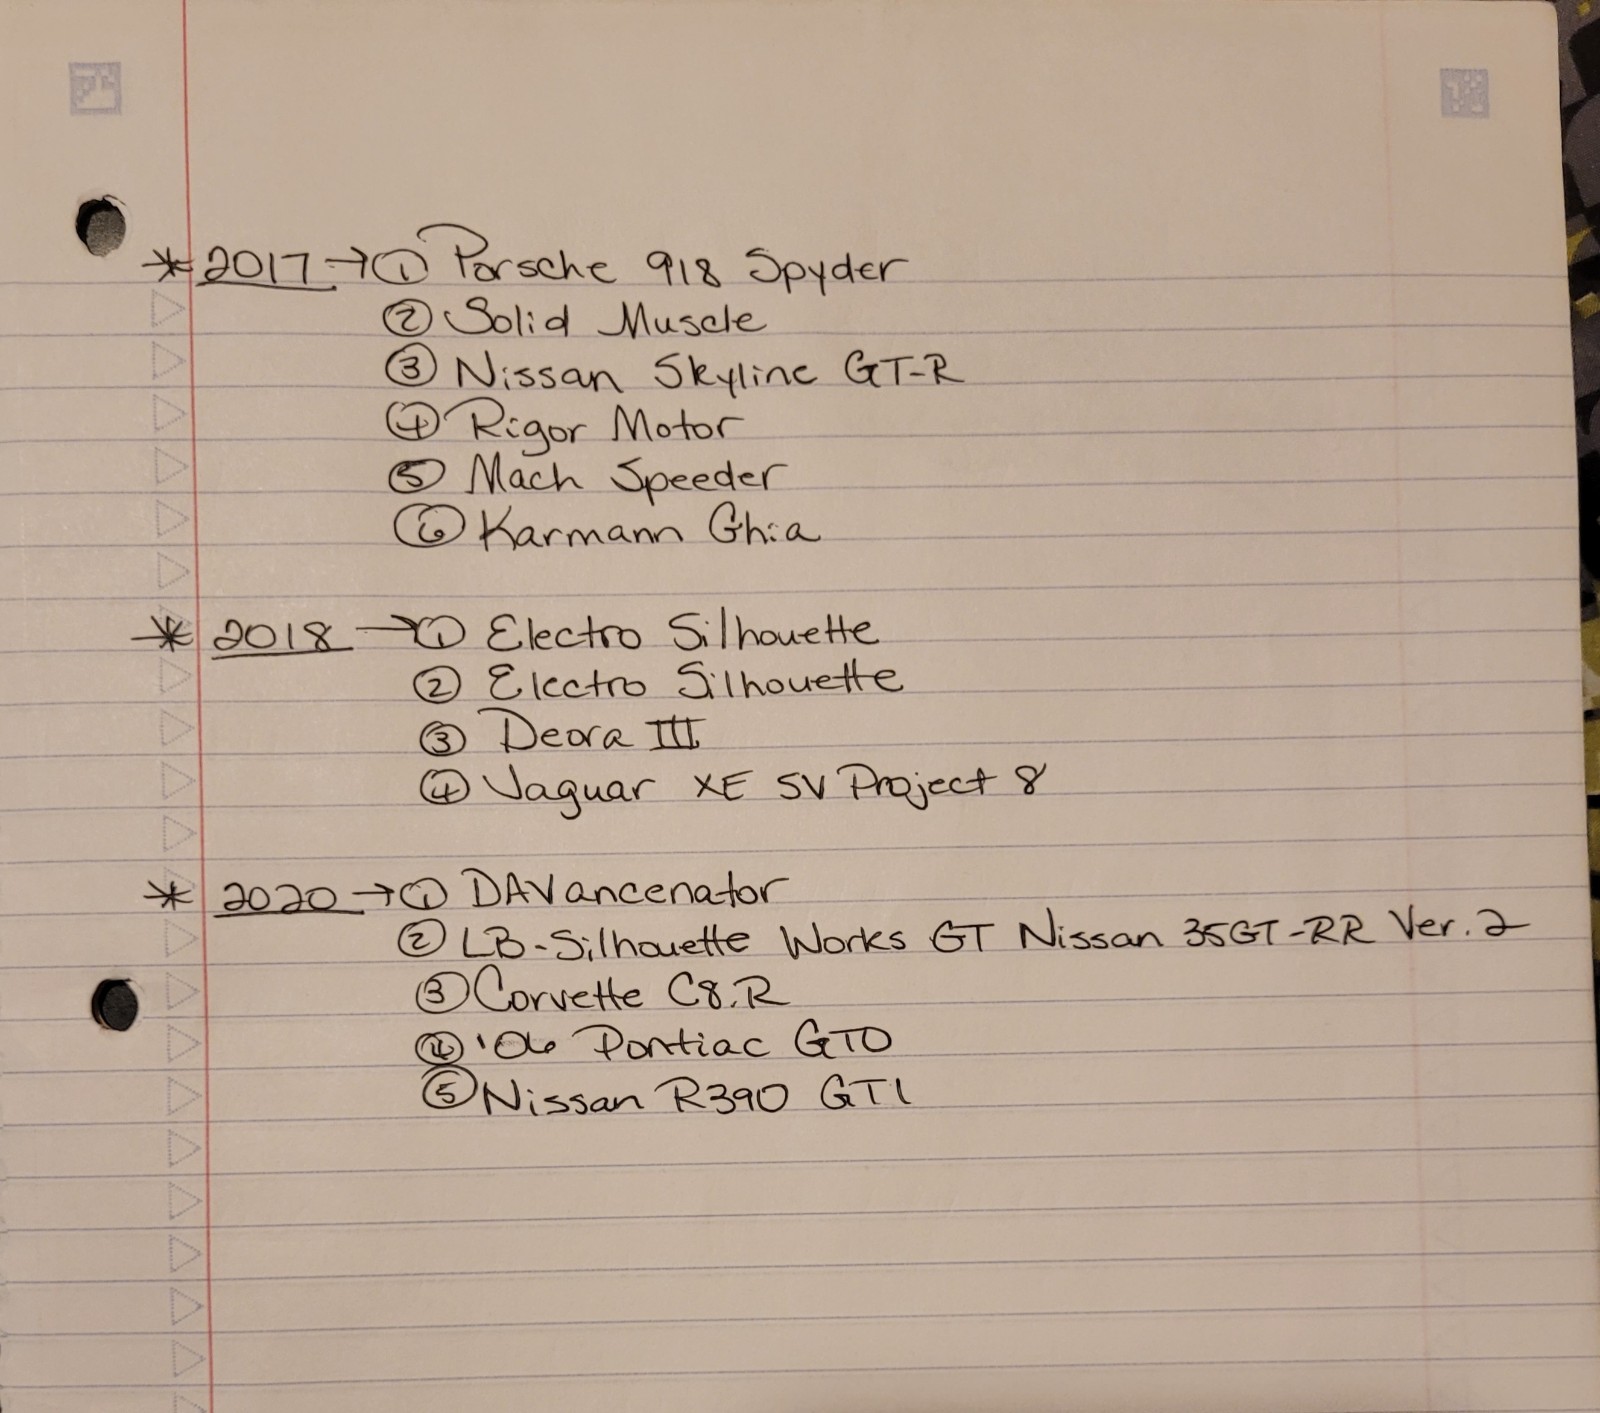 * 2017 → ① Porsche 918 Spyder
② Solid Muscle
③ Nissan Skyline GT-R
④ Rigor Motor
⑤ Mach Speeder
⑥ Karmann Ghia
* 2018 → ① Electro Silhouette
② Electro Silhouette
③ Deora III
④ Jaguar XE SV Project 8
* 2020 → ① DAVancenator
② LB-Silhouette Works GT Nissan 35GT-RR Ver.2
③ Corvette C8.R
④ '06 Pontiac GTO
⑤ Nissan R390 GT1